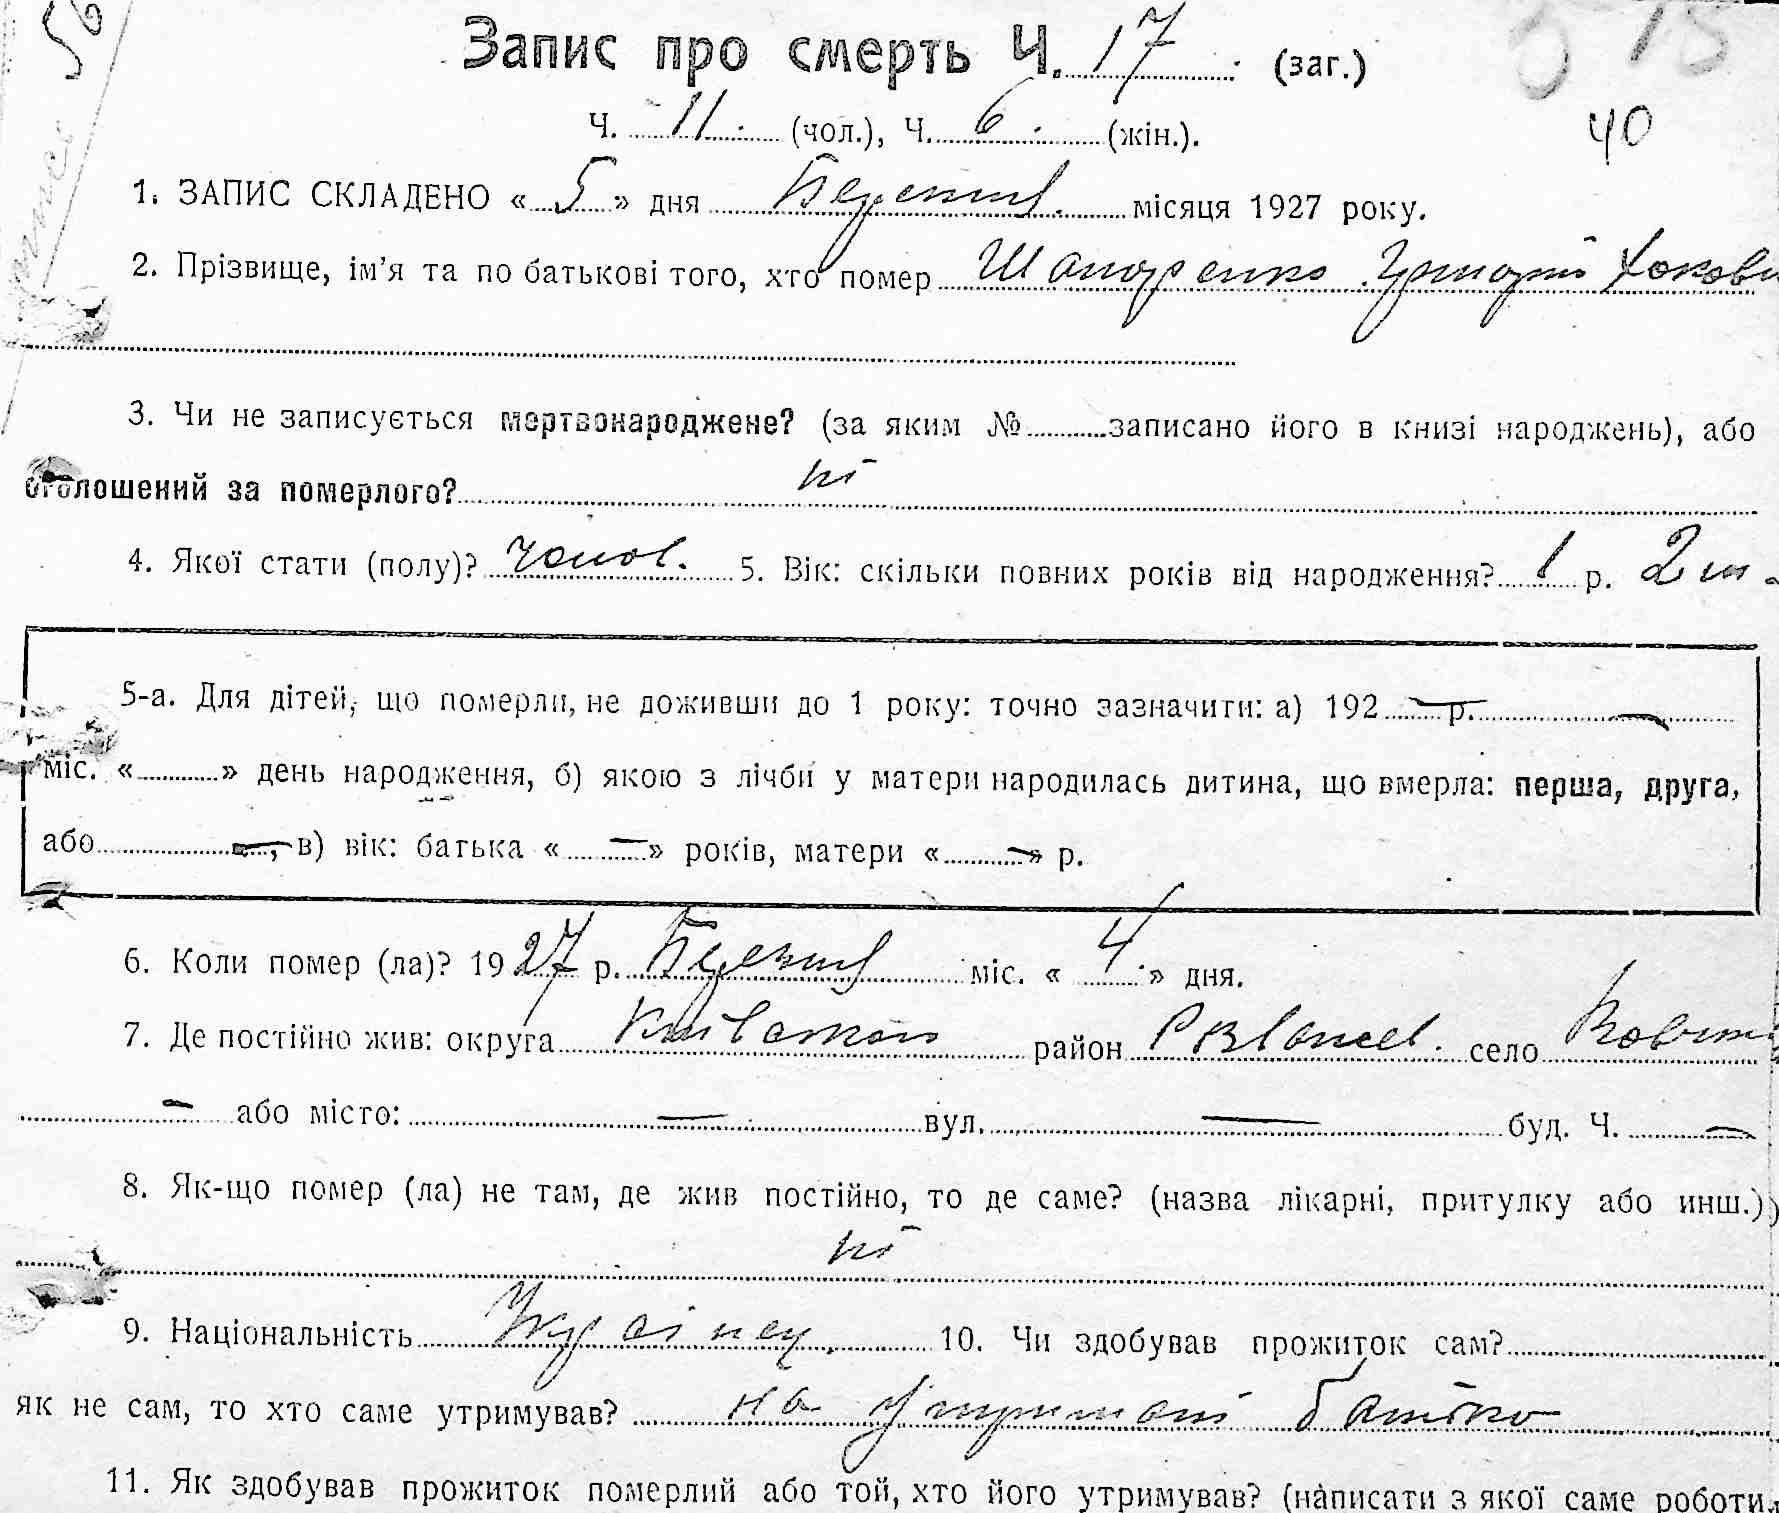 Запис про смерть Ч. 17. (заг.)
40
Ч. 11. (чол.), Ч. 6. (жін.).
1. ЗАПИС СКЛАДЕНО « 5 » дня Березня. місяця 1927 року.
2. Прізвище, ім’я та по батькові того, хто помер Шапоренко Григорій Якови
3. Чи не записується мертвонароджене? (за яким №..........записано його в книзі народжень), або
оголошений за померлого? ні
4. Якої стати (полу)? чолов. 5. Вік: скільки повних років від народження? 1 р. 2 м.
5-а. Для дітей, що померли, не доживши до 1 року: точно зазначити: а) 192 — р. —
міс. «..........» день народження, б) якою з лічби у матери народилась дитина, що вмерла: перша, друга,
або —, в) вік: батька « — » років, матери « — » р.
6. Коли помер (ла)? 1927 р. Березня міс. « 4. » дня.
7. Де постійно жив: округа район село
— або місто: — вул. — буд. Ч. —
8. Як-що помер (ла) не там, де жив постійно, то де саме? (назва лікарні, притулку або инш.)
ні
9. Національність Украінец. 10. Чи здобував прожиток сам?
як не сам, то хто саме утримував? на утримані батько
11. Як здобував прожиток померлий або той, хто його утримував? (написати з якої саме роботи,